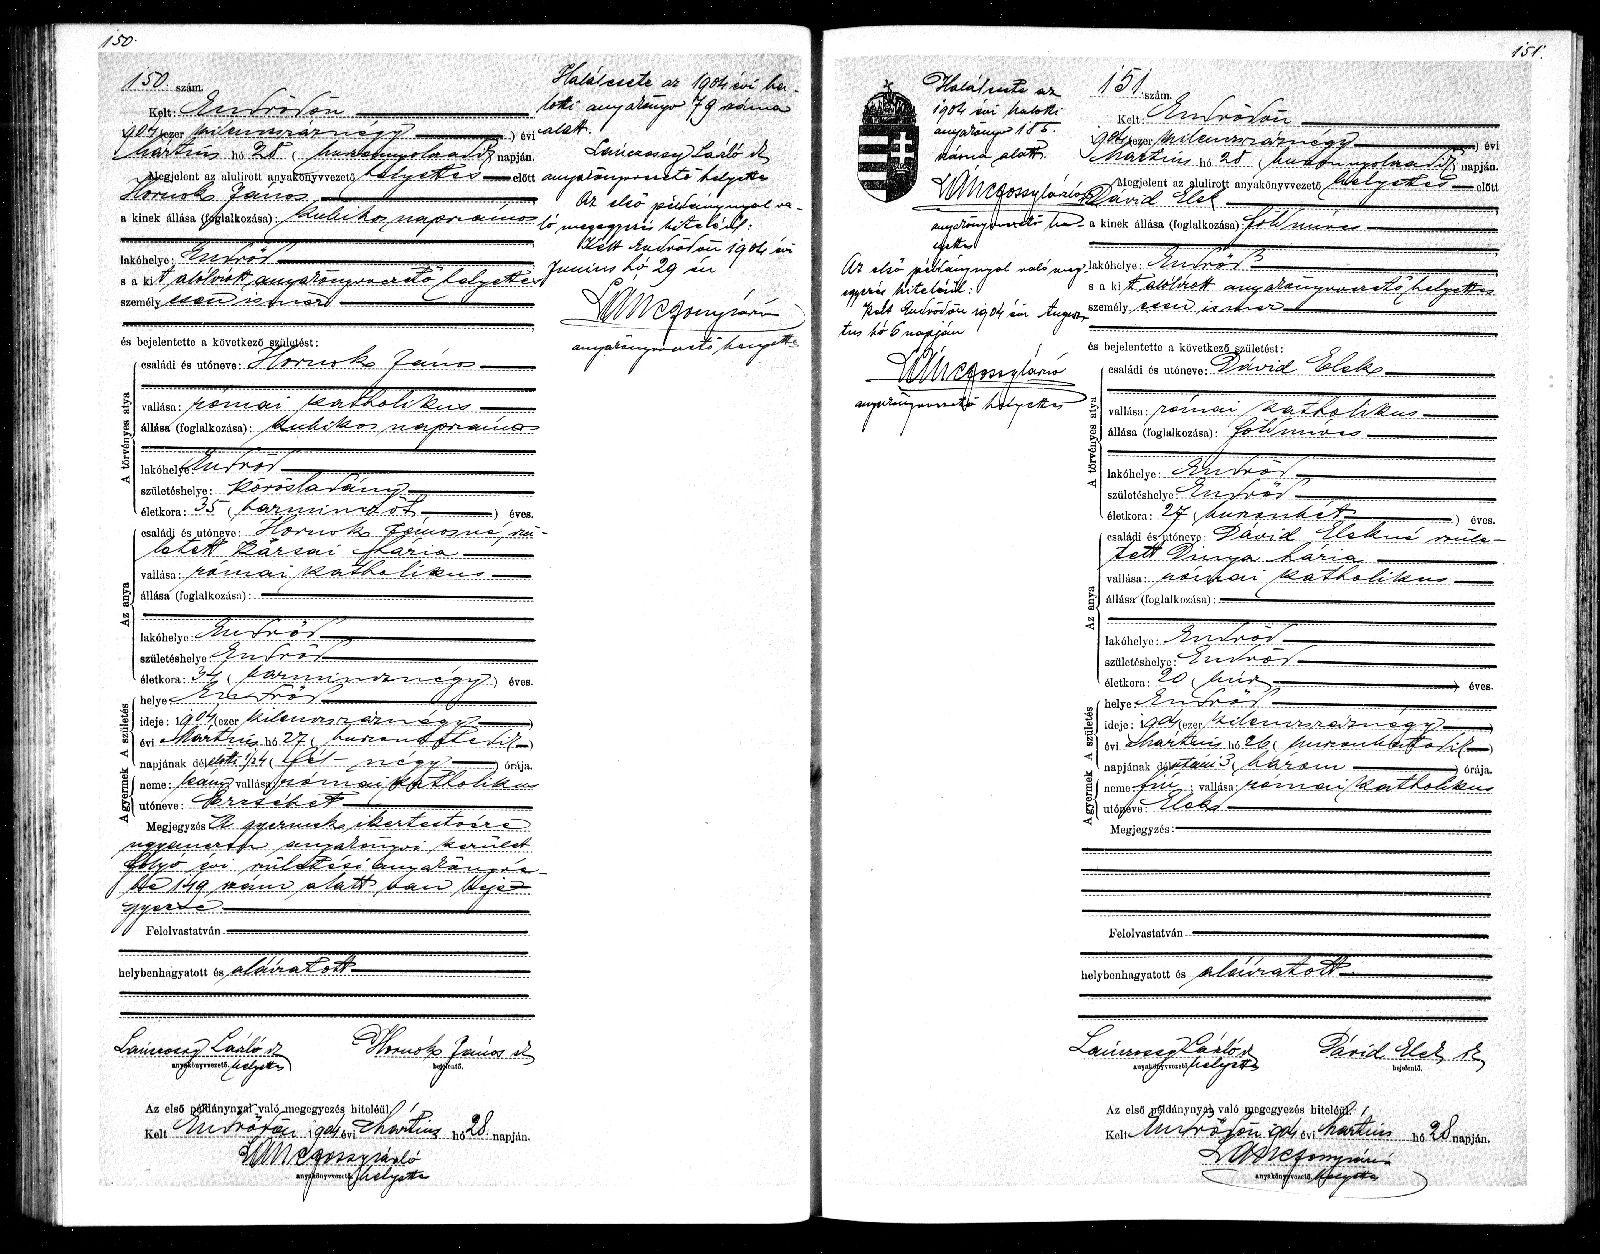 150.
150 szám.
Kelt: Endrődön
1904 (ezer kilenczszáznégy) évi
Martius hó 28 (huszonnyolcadik) napján.
Megjelent az alulirott anyakönyvvezető helyettes előtt
Hornok János
a kinek állása (foglalkozása): kubikos napszámos
lakóhelye: Endrőd
s a kit alólirott anyakönyvvezető helyettes
személyesen ismer
és bejelentette a következő születést:
A törvényes atya
családi és utóneve: Hornok János
vallása: római katholikus
állása (foglalkozása): kubikos napszámos
lakóhelye: Endrőd
születéshelye: Körösladány
életkora: 35 (harminczöt) éves.
Az anya
családi és utóneve: Hornok Jánosné, szü-
letett Mária
vallása: római katholikus
állása (foglalkozása):
lakóhelye: Endrőd
születéshelye: Endrőd
életkora: 34 (harmincznégy) éves.
A születés
helye: Endrőd
ideje: 1904 (ezer kilenczszáznégy)
évi Martius hó 27 (huszonhetedik)
napjának délelőtti 1/2 4 (fél négy) órája.
A gyermek
neme: leány; vallása: római katholikus
utóneve: Erzsébet
Megjegyzés: A gyermek ikertestvére
ugyanezen anyakönyvi kerület
folyó évi születési anyakönyvé-
be 149 szám alatt van beje-
gyezve
Felolvastatván
helybenhagyatott és aláiratott
Lánczossy László sk Hornok János sk
anyakönyvvezető. helyettes bejelentő.
Az első példánynyal való megegyezés hiteléül.
Kelt Endrődön 1904 évi Martius hó 28 napján.
Lánczossy László
anyakönyvvezető. helyettes
Halálesete az 1904 évi ha-
lotti anyakönyv 79 száma
alatt.
Lánczossy László sk
anyakönyvvezető helyettes
Az első példánynyal va-
ló megegyezés hiteléül:
Kelt Endrődön 1904 évi
Junius hó 29 én
Lánczossy László
anyakönyvvezető helyettes
151.
Halálesete az
1904 évi halotti
anyakönyv 185.
száma alatt.
Lánczossy László
anyakönyvvezető he-
lyettes
Az első példánynyal való meg-
egyezés hiteléül:
Kelt Endrődön 1904 évi Augusz-
tus hó 6 napján
Lánczossy László
anyakönyvvezető helyettes
151 szám.
Kelt: Endrődön
1904 (ezer kilenczszáznégy) évi
Martius hó 28 (huszonnyolcadik) napján.
Megjelent az alulirott anyakönyvvezető helyettes előtt
Dávid Elek
a kinek állása (foglalkozása): földmíves
lakóhelye: Endrőd
s a kit alólirott anyakönyvvezető helyettes
személyesen ismer
és bejelentette a következő születést:
A törvényes atya
családi és utóneve: Dávid Elek
vallása: római katholikus
állása (foglalkozása): földmíves
lakóhelye: Endrőd
születéshelye: Endrőd
életkora: 27 (huszonhét) éves.
Az anya
családi és utóneve: Dávid Elekné szüle-
tett Dinya Mária
vallása: római katholikus
állása (foglalkozása):
lakóhelye: Endrőd
születéshelye: Endrőd
életkora: 20 (húsz) éves.
A születés
helye: Endrőd
ideje: 1904 (ezer kilenczszáznégy)
évi Martius hó 26 (huszonhatodik)
napjának délutáni 3 (három) órája.
A gyermek
neme: fiú; vallása: római katholikus
utóneve: Elek
Megjegyzés:
Felolvastatván
helybenhagyatott és aláiratott
Lánczossy László sk Dávid Elek sk
anyakönyvvezető. helyettes bejelentő.
Az első példánynyal való megegyezés hiteléül.
Kelt Endrődön 1904 évi Martius hó 28 napján.
Lánczossy László
anyakönyvvezető. helyettes